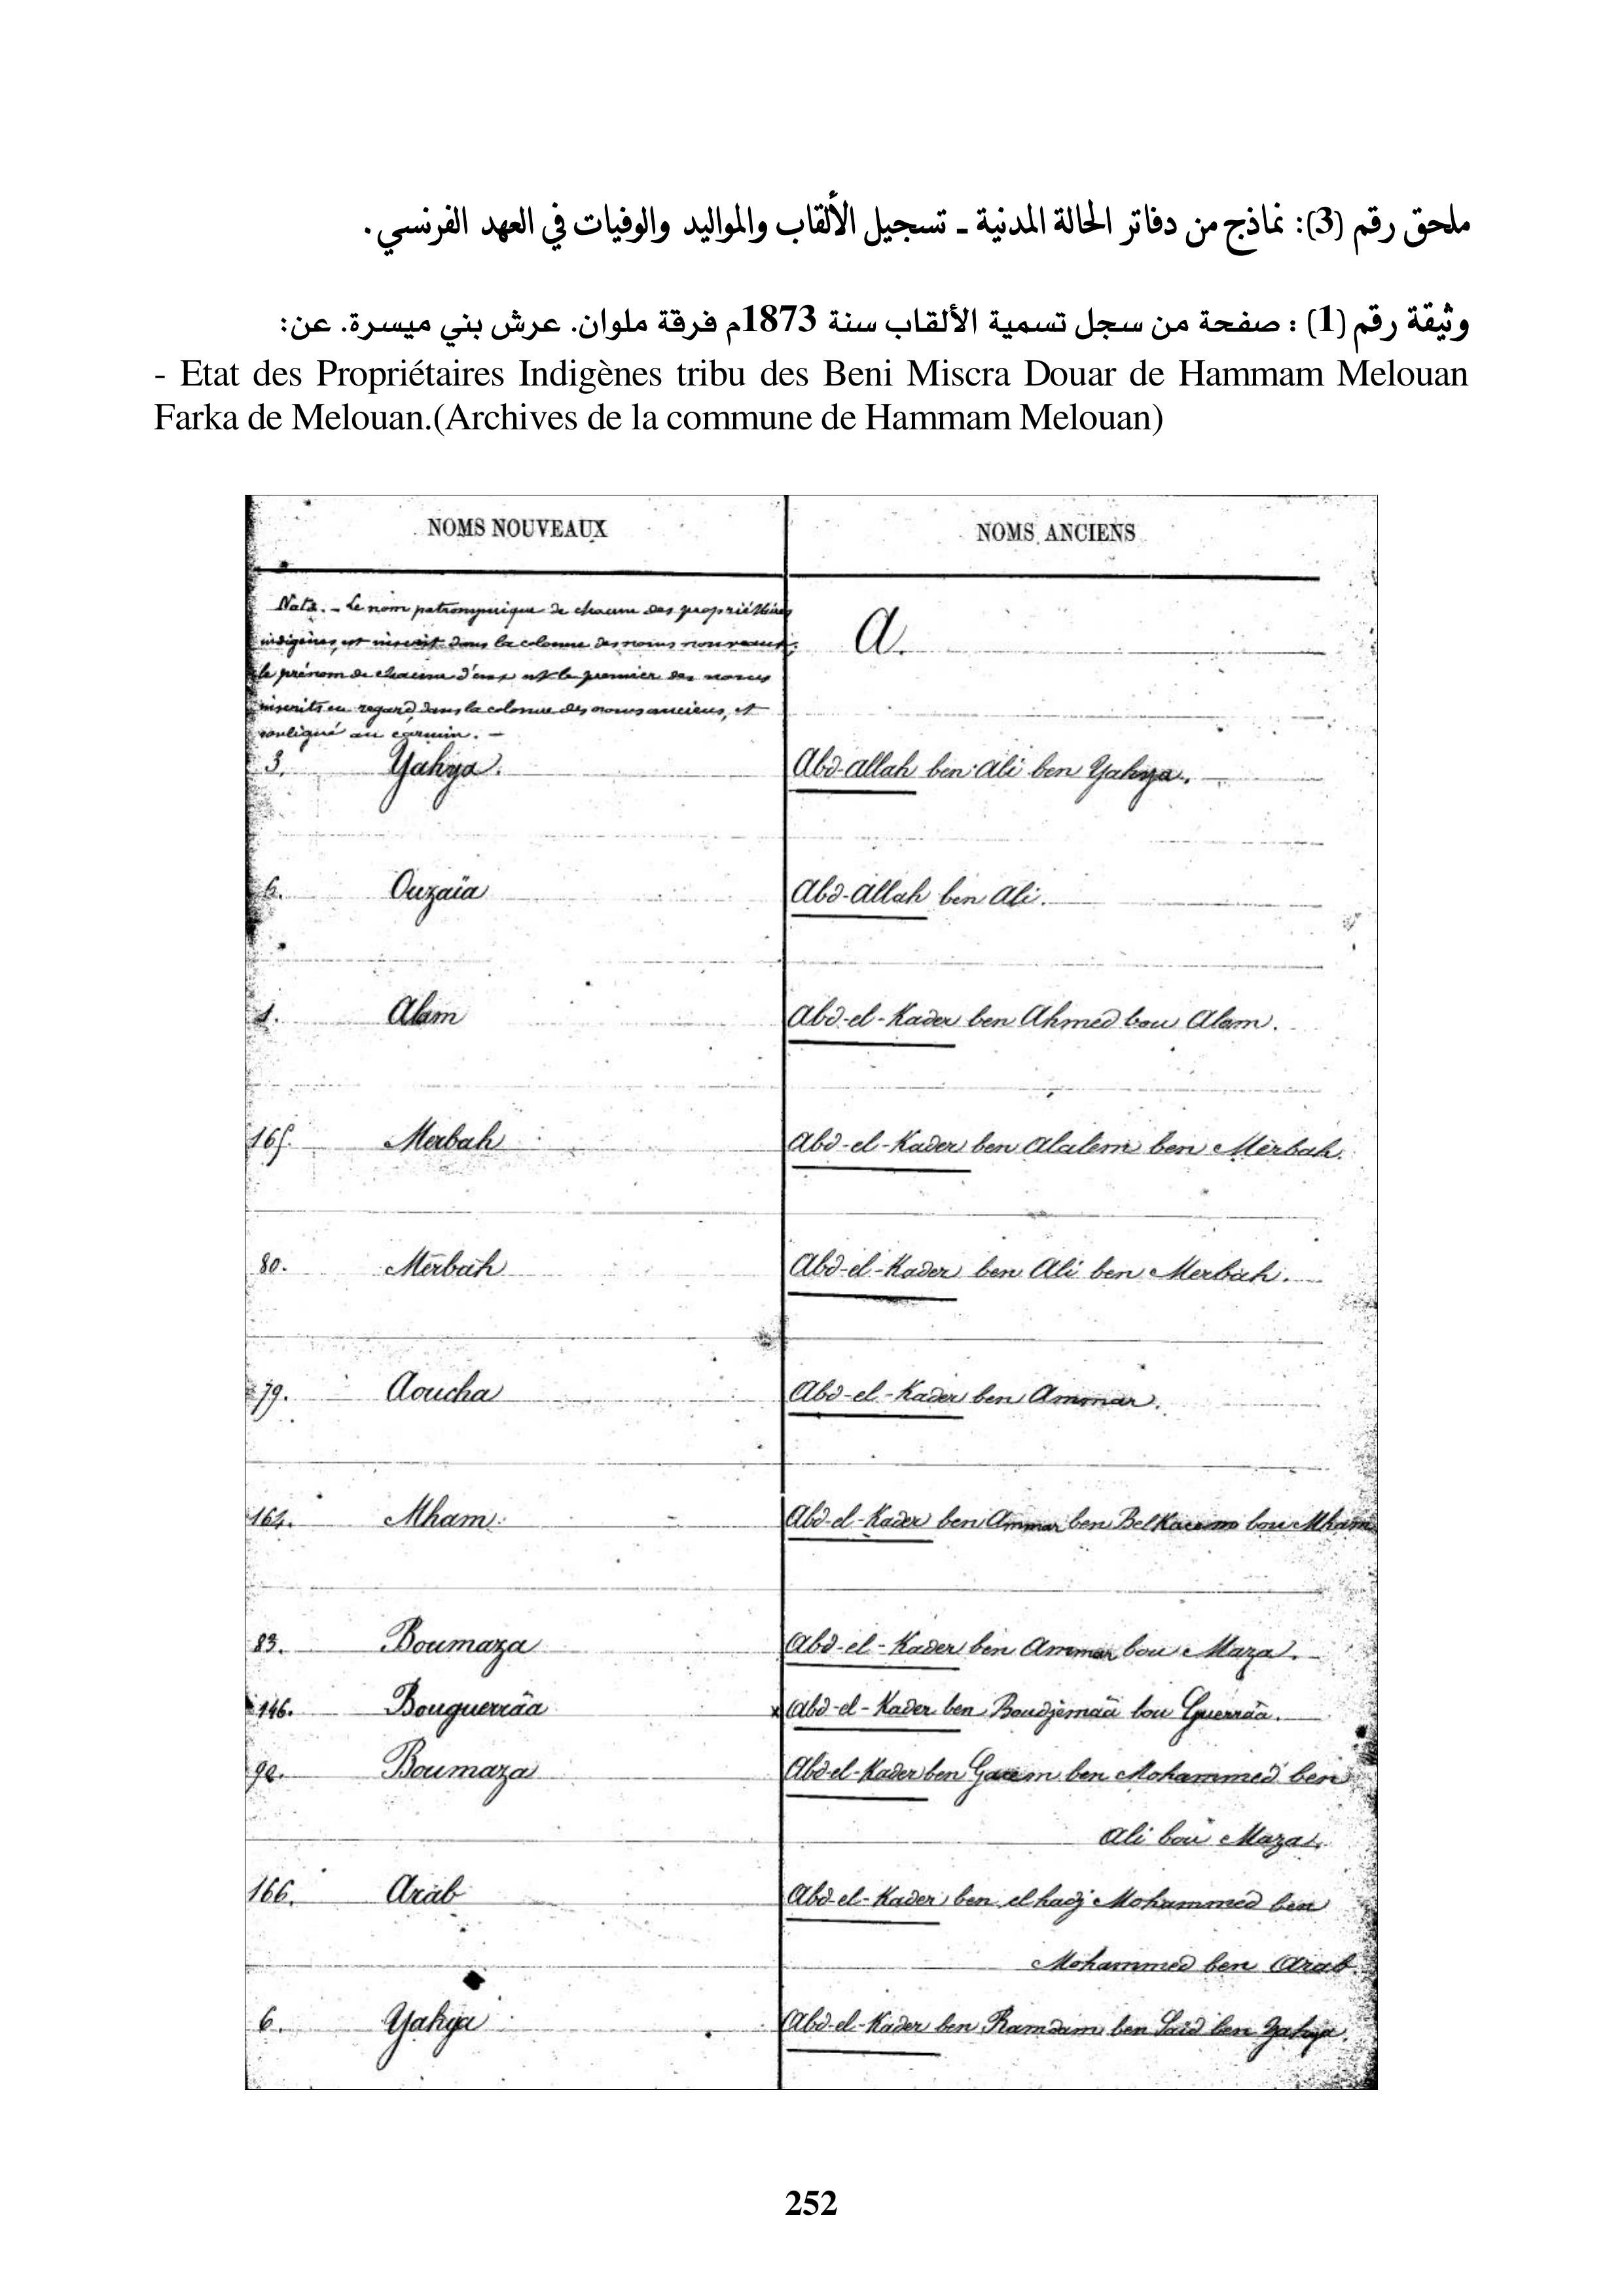 ملحق رقم (3): نماذج من دفاتر الحالة المدنية ـ تسجيل الألقاب والمواليد والوفيات في العهد الفرنسي.
وثيقة رقم (1) : صفحة من سجل تسمية الألقاب سنة 1873م فرقة ملوان. عرش بني ميسرة. عن:
- Etat des Propriétaires Indigènes tribu des Beni Miscra Douar de Hammam Melouan
Farka de Melouan.(Archives de la commune de Hammam Melouan)
NOMS NOUVEAUX NOMS ANCIENS
Nota. - Le nom patronymique de chacun des propriétaires
indigènes, est inscrit dans la colonne des noms nouveaux;
le prénom de chacun d'eux est le premier des noms
inscrits en regard, dans la colonne des noms anciens, et
souligné au carmin. -
A.
3. Yahya. Abd-allah ben Ali ben Yahya.
Ouzaïa Abd-allah ben Ali.
Alam Abd-el-Kader ben Ahmed bou Alam.
165. Merbah Abd-el-Kader ben Alalem ben Merbah.
80. Merbah Abd-el-Kader ben Ali ben Merbah.
79. Aoucha Abd-el-Kader ben Ammar.
164. Mham. Abd-el-Kader ben Ammar ben Belkacem bou Mham
83. Boumaza Abd-el-Kader ben Ammar bou Maza.
146. Bouguerrâa x Abd-el-Kader ben Boudjemâa bou Guerrâa.
92. Boumaza Abd-el-Kader ben Gacem ben Mohammed ben
Ali bou Maza.
166. Arab Abd-el-Kader ben el hadj Mohammed ben
Mohammed ben Arab
6. Yahya Abd-el-Kader ben Ramdam ben Saïd ben Yahya.
252